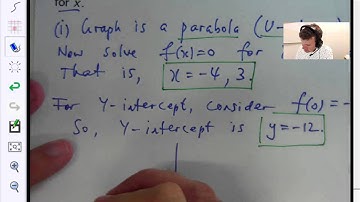 for x.
(i) Graph is a parabola (U-
Now solve f(x)=0 for
That is, x = -4, 3.
For Y-intercept, consider f(0) = -
So, Y-intercept is y = -12.